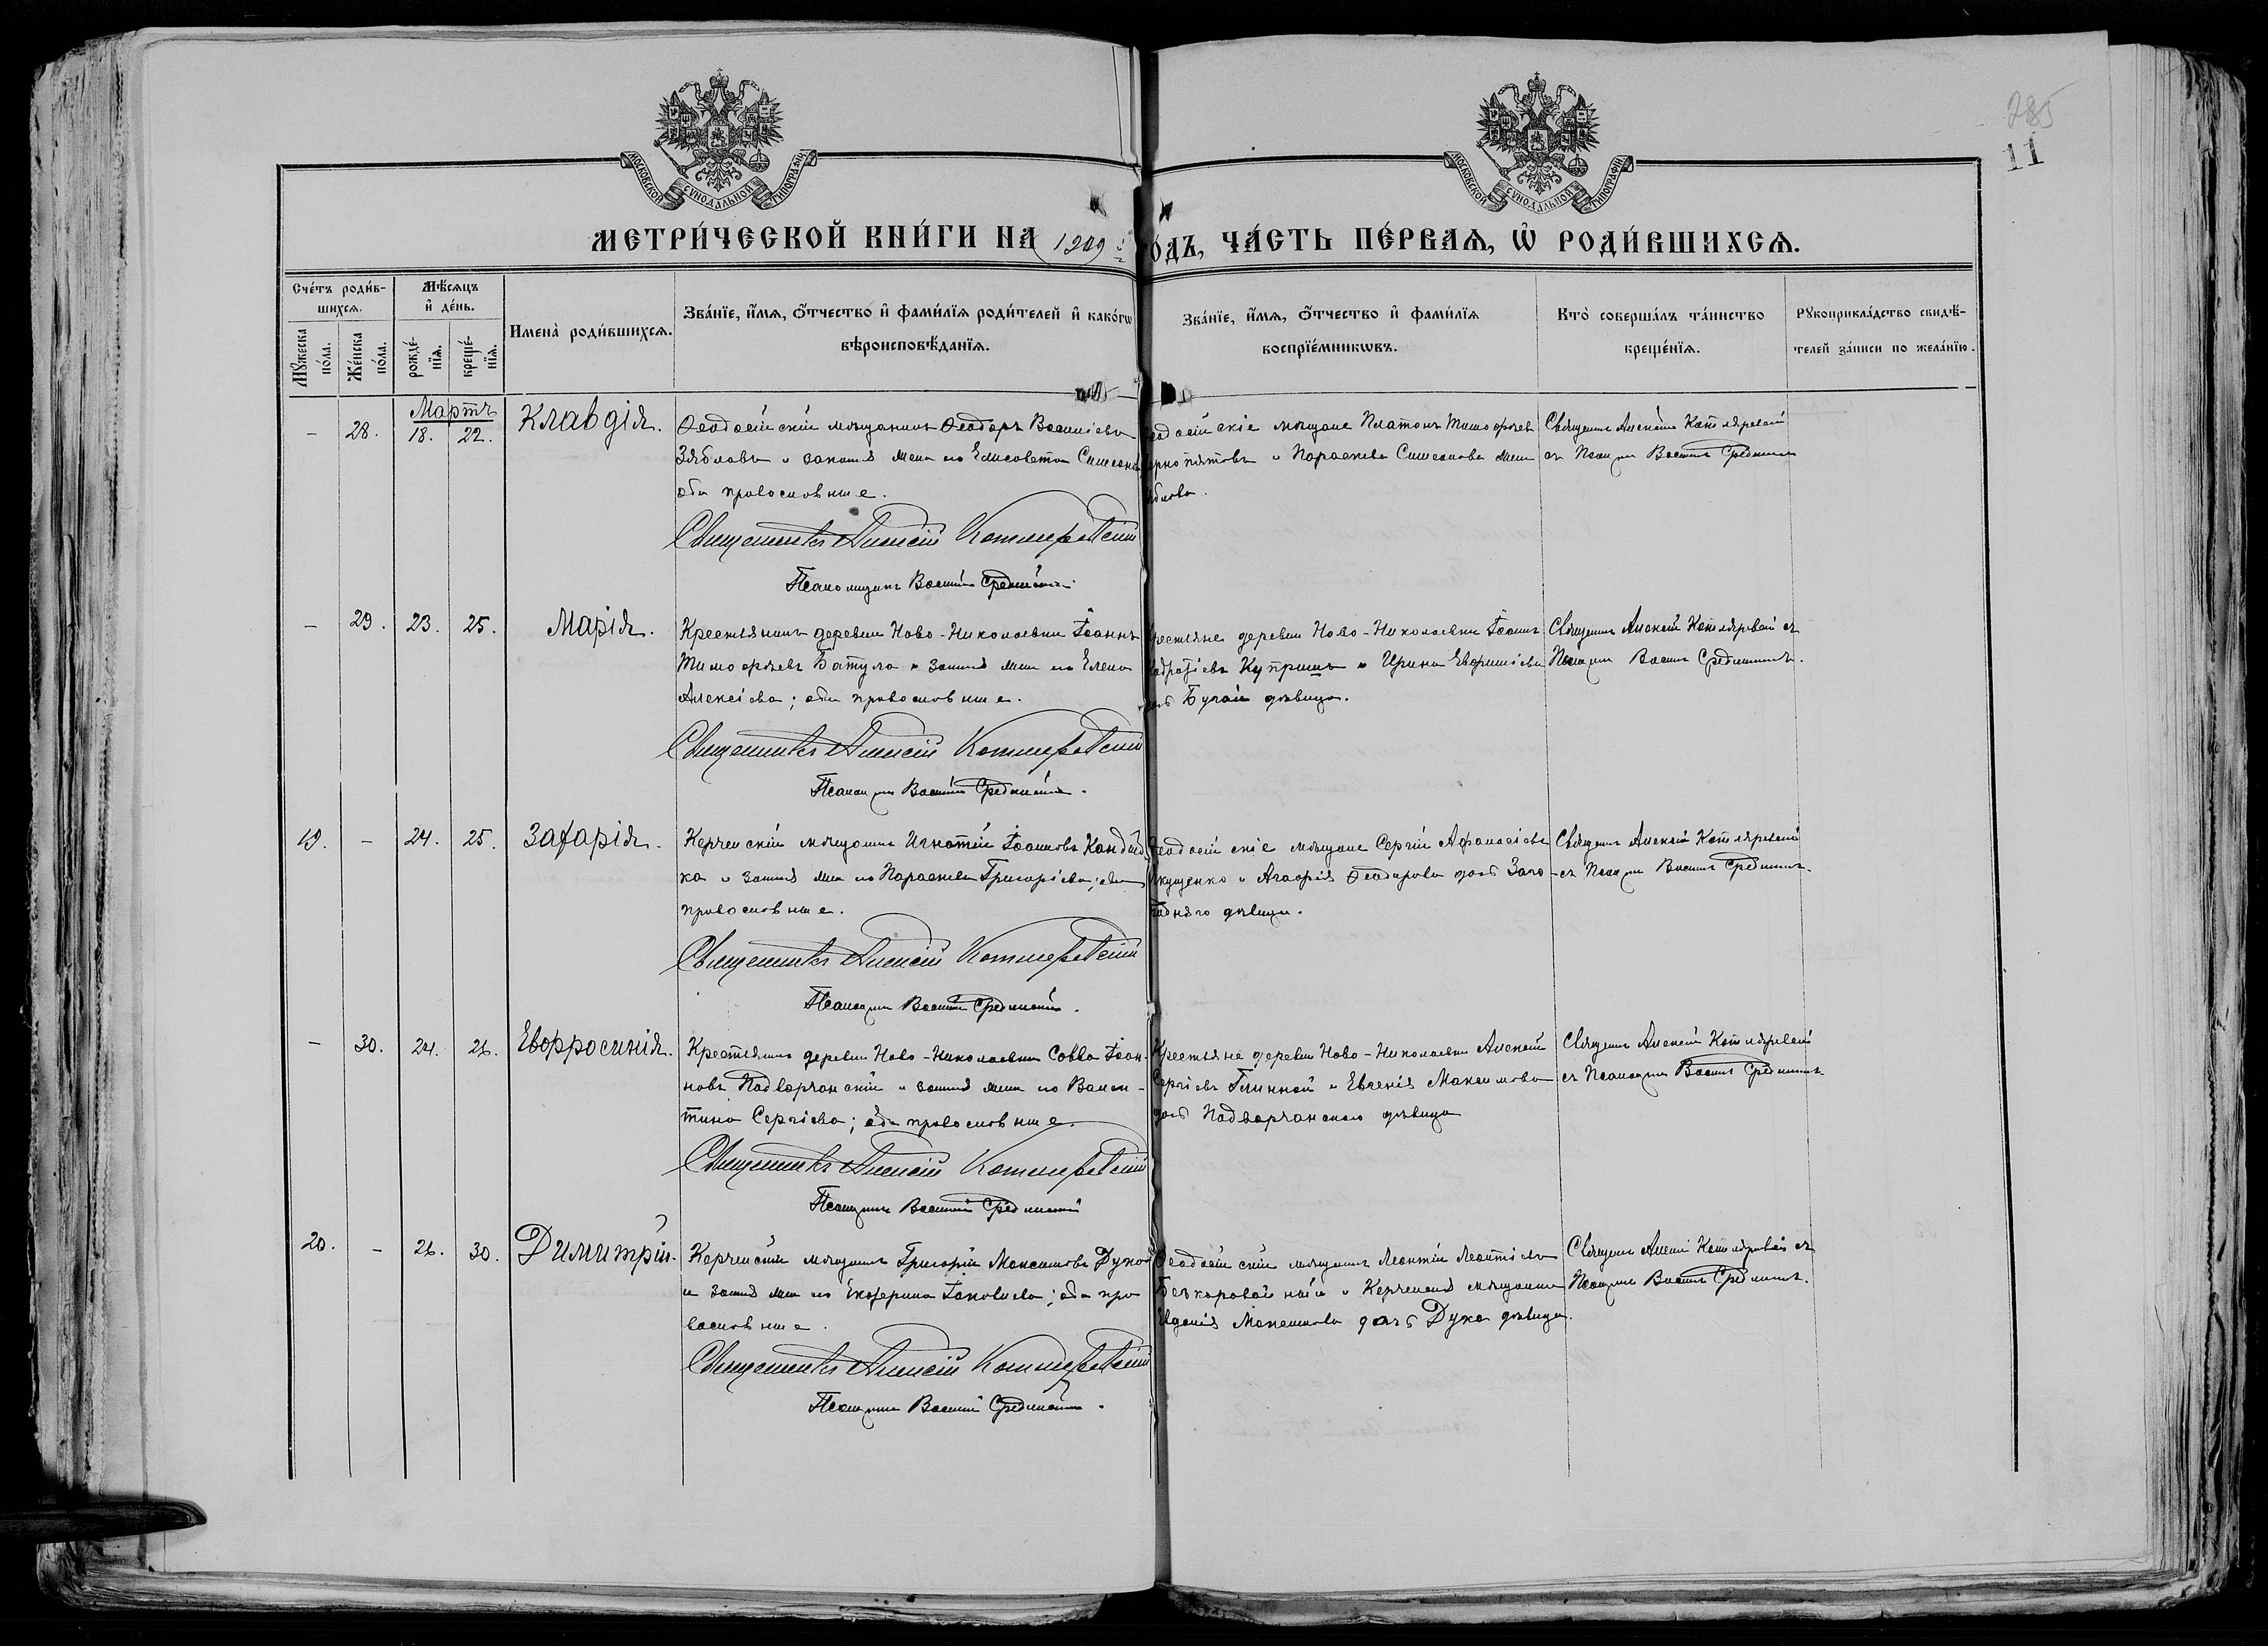 285
11
МОСКОВСКОЙ СѴНОДАЛЬНОЙ ТИПОГРАФІИ
МОСКОВСКОЙ СѴНОДАЛЬНОЙ ТИПОГРАФІИ
МЕТРИ́ЧЕСКОЙ КНИ́ГИ НА 1909 го́дъ, ЧА́СТЬ ПЕ́РВАѦ, Ѡ РОДИ́ВШИХСѦ.
Сче́тъ роди́в-
шихсѧ.
Мꙋжеска по́ла.
Же́нска по́ла.
Мѣ́сѧцъ
и де́нь.
рожде́-
нїѧ.
креще́-
нїѧ.
Имена̀ роди́вшихсѧ.
Зва́нїе, и́мѧ, ѻ́тчество и фами́лїѧ роди́телей и како́гѡ
вѣроисповѣ́данїѧ.
Зва́нїе, и́мѧ, ѻ́тчество и фами́лїѧ
воспрїе́мникѡвъ.
Кто̀ соверша́лъ та́инство
креще́нїѧ.
Рꙋкоприкла́дство свидѣ́-
телей за́писи по жела́нїю.
Мартъ
– 28. 18. 22. Клавдія.
Ѳеодосійскій мѣщанинъ Ѳеодоръ Василіевъ
Зябловъ и законная жена его Елисавета Симеонова
оба православные.
Священникъ Алексій Котляревскій
Псаломщикъ Василій Срединскій
Ѳеодосійскіе мѣщане Платонъ Тимоѳеевъ
и Параскева Симеонова
Священникъ Алексій Котляревскій
съ Псаломщ Василіемъ Срединскимъ
– 29. 23. 25. Марія.
Крестьянинъ деревни Ново-Николаевки Іоаннъ
Тимоѳеевъ Батула и законная жена его Елена
Алексіева; оба православные.
Священникъ Алексій Котляревскій
Псаломщ Василій Срединскій.
Крестьяне деревни Ново-Николаевки Іоаннъ
Купринъ и Ирина
дочь Бугай дѣвица.
Священникъ Алексій Котляревскій съ
Псаломщ Василіемъ Срединскимъ.
19. – 24. 25. Захарія.
Керченскій мѣщанинъ Игнатій Іоанновъ Кандыб
ка и законная жена его Параскева Григоріева; оба
православные.
Священникъ Алексій Котляревскій
Псаломщ Василій Срединскій.
Ѳеодосійскіе мѣщане Сергій Аѳанасіевъ
и Агаѳія Ѳеодорова дочь Заго-
дѣвица.
Священникъ Алексій Котляревскій
съ Псаломщ Василіемъ Срединскимъ.
– 30. 24. 26. Евфросинія.
Крестьянинъ деревни Ново-Николаевки Савва Іоан-
новъ Подворчанскій и законная жена его Вален-
тина Сергіева; оба православные.
Священникъ Алексій Котляревскій
Псаломщикъ Василій Срединскій
Крестьяне деревни Ново-Николаевки Алексій
Сергіевъ Глинной и Евгенія Максимова
дочь Подворчанскаго дѣвица
Священникъ Алексій Котляревскій
съ Псаломщ Василіемъ Срединскимъ
20. – 26. 30. Димитрій.
Керченскій мѣщанинъ Григорій Максимовъ Духой
и законная жена его Екатерина Іаковлева; оба пра
вославные.
Священникъ Алексій Котляревскій
Псаломщ Василій Срединскій.
Ѳеодосійскій мѣщанинъ Леонтій Леонтіевъ
Безкоровайный и Керченская мѣщанка
Максимова дочь Духа дѣвица.
Священникъ Алексій Котляревскій съ
Псаломщ Василіемъ Срединскимъ.